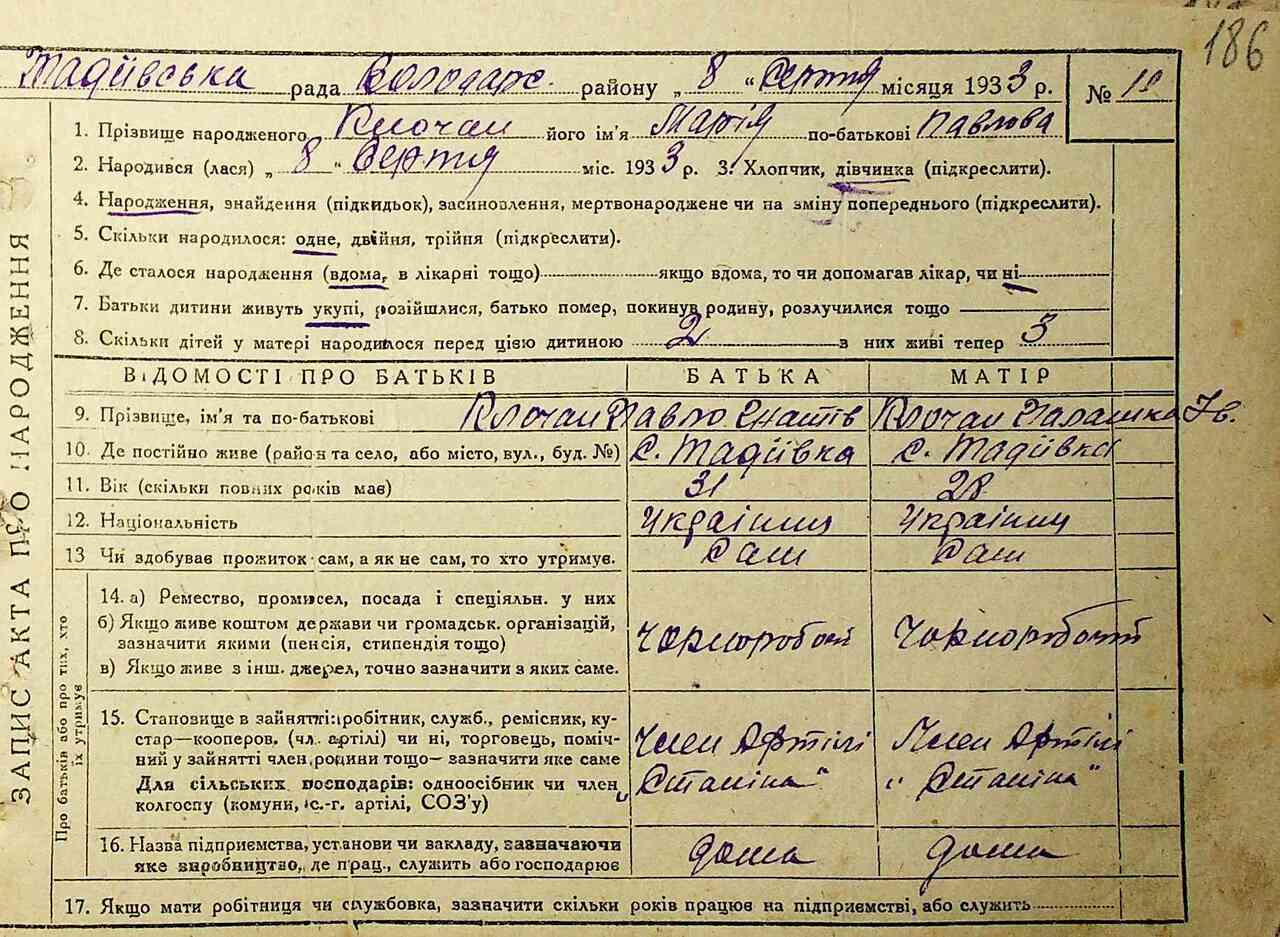 186
Тадіївська рада Володарс. району „ 8 “ Серпня місяця 1933 р. № 11
1. Прізвище народженого Клочан його ім'я Марія по-батькові Павлова
2. Народився (лася) „ 8 “ Серпня міс. 1933 р. 3. Хлопчик, дівчинка (підкреслити).
4. Народження, знайдення (підкидьок), засиновлення, мертвонароджене чи на зміну попереднього (підкреслити).
5. Скільки народилося: одне, двійня, трійня (підкреслити).
6. Де сталося народження (вдома, в лікарні тощо) якщо вдома, то чи допомагав лікар, чи ні
7. Батьки дитини живуть укупі, розійшлися, батько помер, покинув родину, розлучилися тощо
8. Скільки дітей у матері народилося перед цією дитиною 2 з них живі тепер 3
ВІДОМОСТІ ПРО БАТЬКІВ БАТЬКА МАТІР
9. Прізвище, ім'я та по-батькові Клочан Павло Клочан Палашка Ів.
10. Де постійно живе (район та село, або місто, вул., буд. №) С. Тадіївка С. Тадіївка
11. Вік (скільки повних років має) 31 28
12. Національність Українця Українця
13 Чи здобуває прожиток сам, а як не сам, то хто утримує. Сам Сам
14. а) Ремество, промисел, посада і спеціяльн. у них
б) Якщо живе коштом держави чи громадськ. організацій,
зазначити якими (пенсія, стипендія тощо)
в) Якщо живе з інш. джерел, точно зазначити з яких саме.
Чорноробочий Чорноробочий
15. Становище в зайнятті: робітник, служб., ремісник, ку-
стар—кооперов. (чл. артілі) чи ні, торговець, поміч-
ний у зайнятті член родини тощо— зазначити яке саме
Для сільських господарів: одноосібник чи член
колгоспу (комуни, с.-г. артілі, СОЗ'у)
Член Артілі Член Артілі
„ Сталіна “ „ Сталіна “
16. Назва підприємства, установи чи закладу, зазначаючи
яке виробництво, де прац., служить або господарює
дома дома
17. Якщо мати робітниця чи службовка, зазначити скільки років працює на підприємстві, або служить
ЗАПИС АКТА ПРО НАРОДЖЕННЯ
Про батьків або про тих, хто
їх утримує